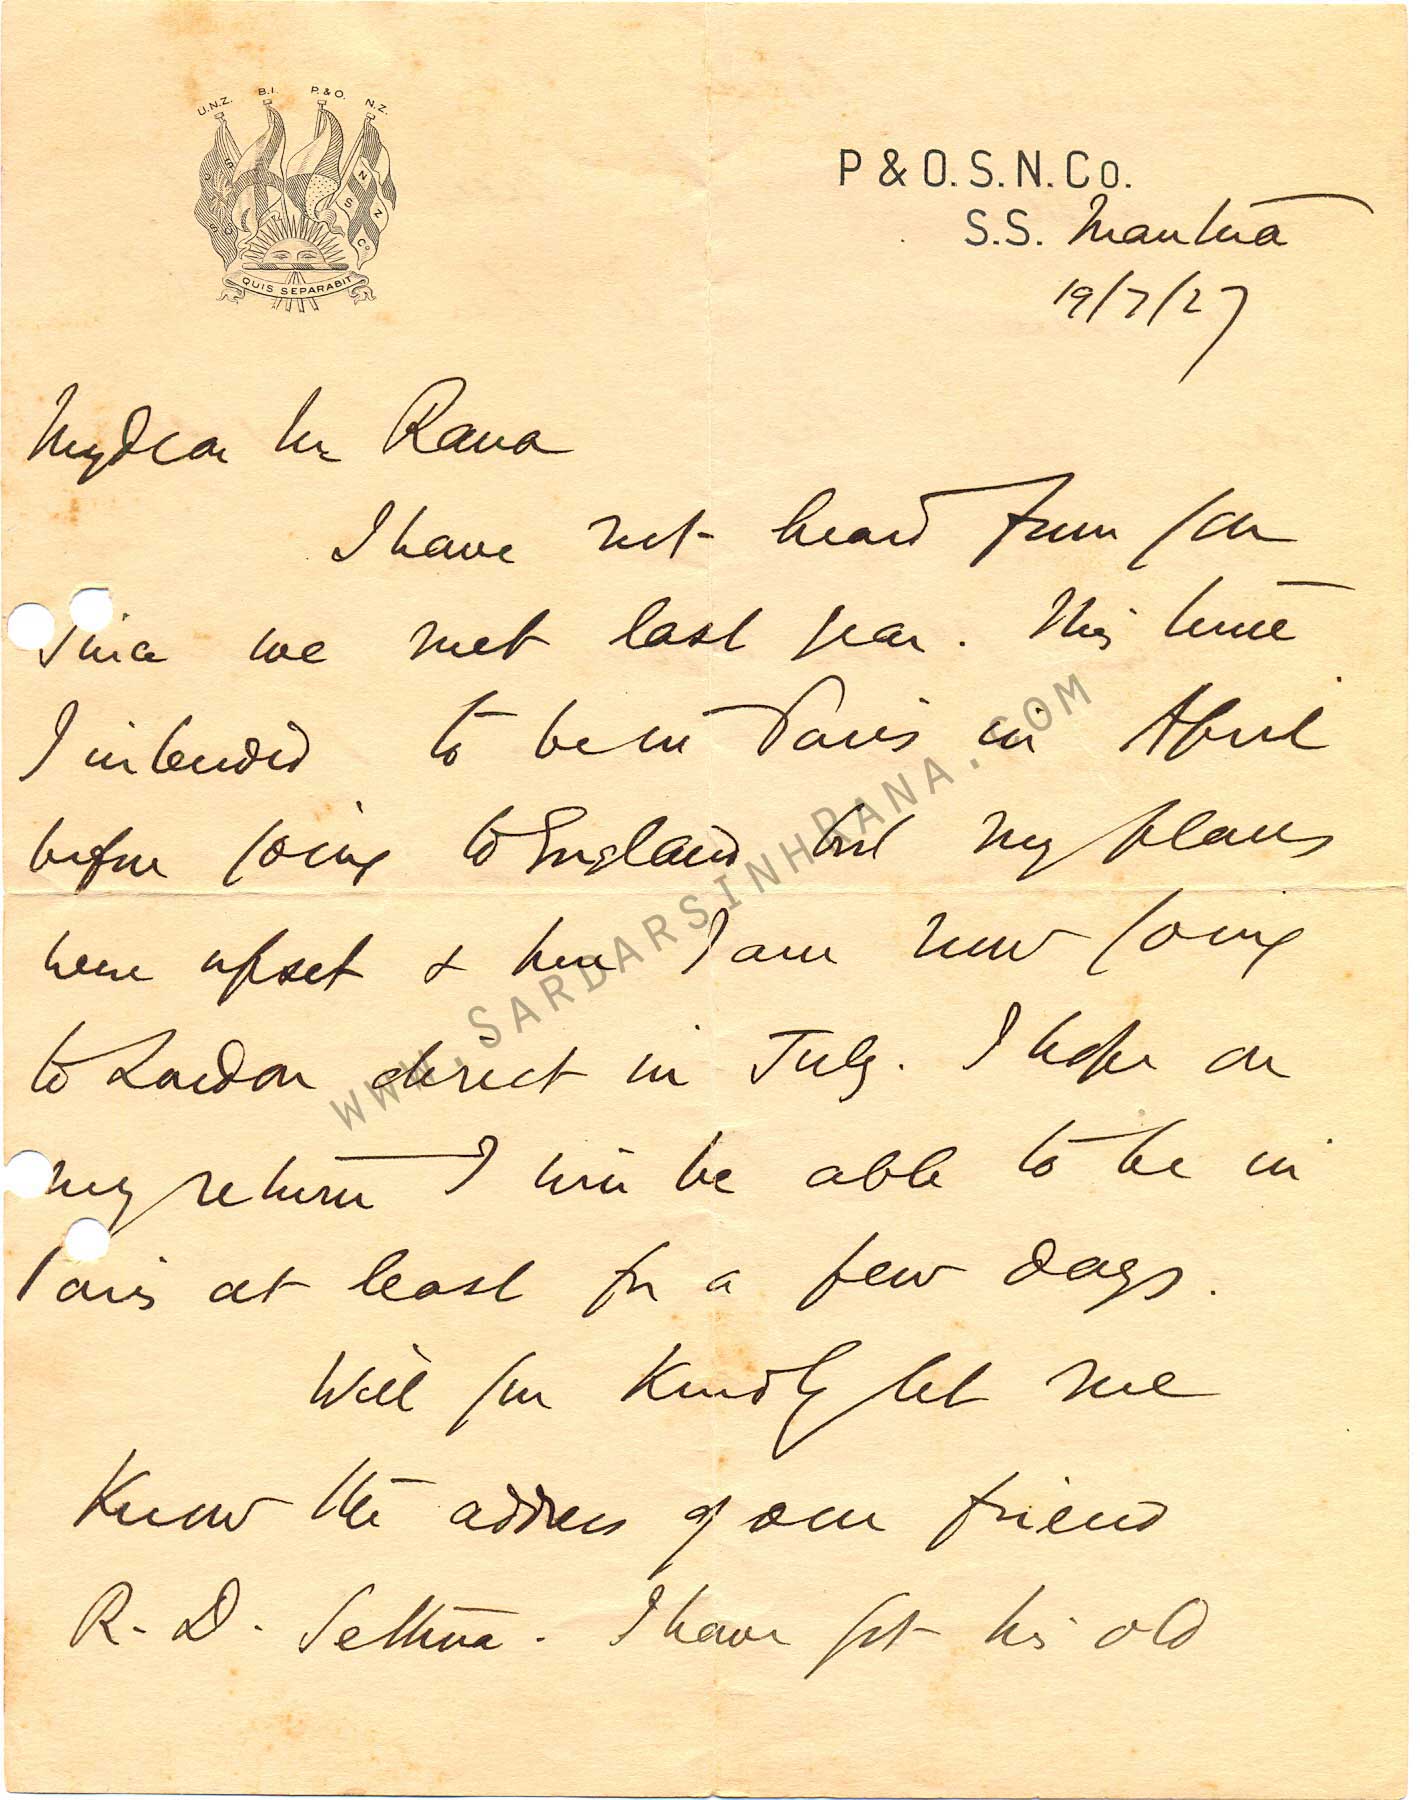 U.N.Z. B.I. P.&O. N.Z.
U S S Co
N Z S Co
QUIS SEPARABIT
P & O. S. N. Co.
S.S. Mantua
19/7/27
My dear Mr Rana
I have not heard from you
since we met last year. This time
I intended to be in Paris in April
before going to England but my plans
were upset & hence I am now going
to London direct in July. I hope on
my return I will be able to be in
Paris at least for a few days.
Will you kindly let me
know the address of our friend
R. D. Sethna. I have got his old
WWW.SARDARSINHRANA.COM